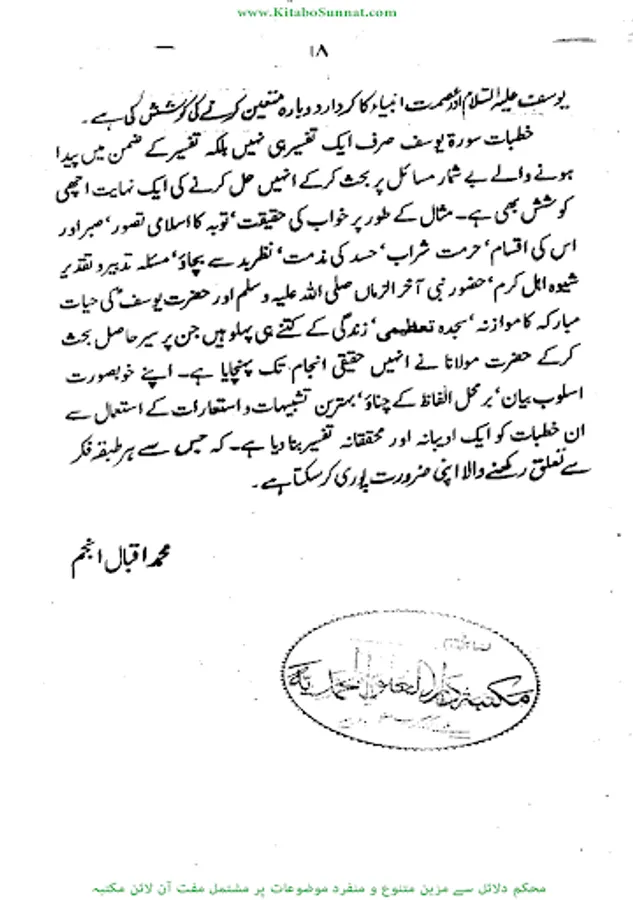 www.KitaboSunnat.com
۱۸
یوسف علیہ السلام اور عصمت انبیاء کا کردار دوبارہ متعین کرنے کی کوشش کی ہے۔
خطبات سورۃ یوسف صرف ایک تفسیر ہی نہیں بلکہ تفسیر کے ضمن میں پیدا
ہونے والے بے شمار مسائل پر بحث کرکے انہیں حل کرنے کی ایک نہایت اچھی
کوشش بھی ہے۔ مثال کے طور پر خواب کی حقیقت، توبہ کا اسلامی تصور، صبر اور
اس کی اقسام، حرمت شراب، حسد کی مذمت، نظربد سے بچاؤ، مسئلہ تدبیر و تقدیر
شیوہ اہل کرم، حضور نبی آخر الزماں صلی اللہ علیہ وسلم اور حضرت یوسف کی حیات
مبارکہ کا موازنہ، سجدہ تعظیمی، زندگی کے کتنے ہی پہلو ہیں جن پر سیر حاصل بحث
کرکے حضرت مولانا نے انہیں حقیقی انجام تک پہنچایا ہے۔ اپنے خوبصورت
اسلوب بیان، برمحل الفاظ کے چناؤ، بہترین تشبیہات و استعارات کے استعمال سے
ان خطبات کو ایک ادیبانہ اور محققانہ تفسیر بنا دیا ہے۔ کہ جس سے ہر طبقہ فکر
سے تعلق رکھنے والا اپنی ضرورت پوری کر سکتا ہے۔
محمد اقبال انجم
مکتبہ دار
محکم دلائل سے مزین متنوع و منفرد موضوعات پر مشتمل مفت آن لائن مکتبہ